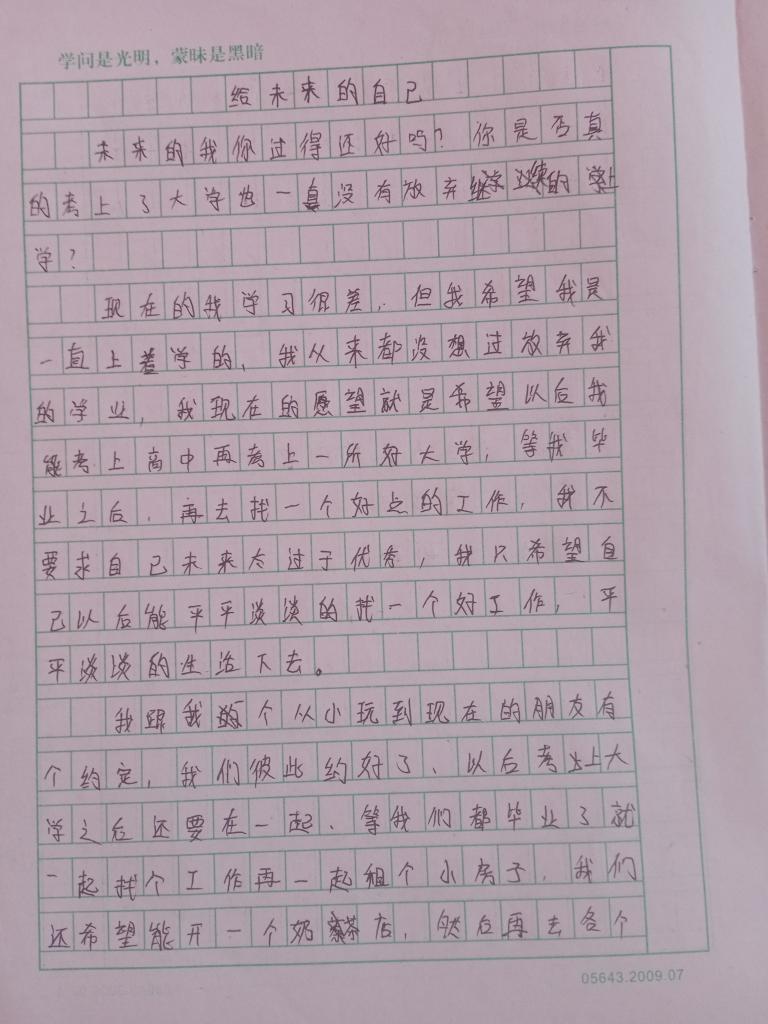 学问是光明，蒙昧是黑暗
给未来的自己
未来的我你过得还好吗？你是否真
的考上了大学也一直没有放弃继续的学
学？
现在的我学习很差，但我希望我是
一直上着学的，我从来都没想过放弃我
的学业，我现在的愿望就是希望以后我
能考上高中再考上一所好大学，等我毕
业之后，再去找一个好点的工作，我不
要求自己未来太过于优秀，我只希望自
己以后能平平淡淡的找一个好工作，平
平淡淡的生活下去。
我跟我的个从小玩到现在的朋友有
个约定，我们彼此约好了、以后考上大
学之后还要在一起、等我们都毕业了就
一起找个工作再一起租个小房子，我们
还希望能开一个奶茶店，然后再去各个
05643.2009.07